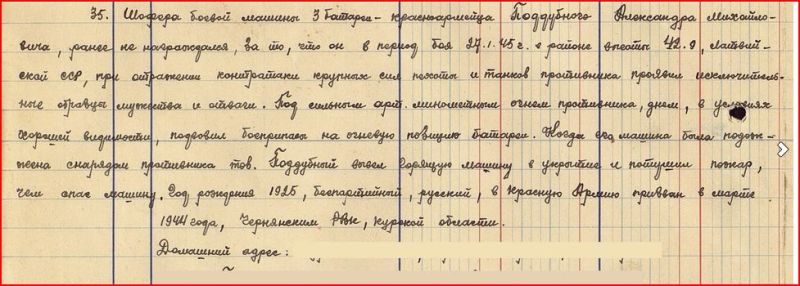 35. Шофера боевой машины 3 батареи - красноармейца Поддубного Александра Михайло-
вича, ранее не награждался, за то, что он в период боя 27.1.45 г. в районе высоты 42.9, Латвий-
ской ССР, при отражении контратаки крупных сил пехоты и танков противника проявил исключитель-
ные образцы мужества и отваги. Под сильным арт. минометным огнем противника, днем, в условиях
хорошей видимости, подвозил боеприпасы на огневую позицию батареи. Когда его машина была подож-
жена снарядом противника тов. Поддубный вывел горящую машину в укрытие и потушил пожар,
чем спас машину. Год рождения 1925, беспартийный, русский, в Красную Армию призван в марте
1944 года, Чернянским РВК, Курской области.
Домашний адрес: